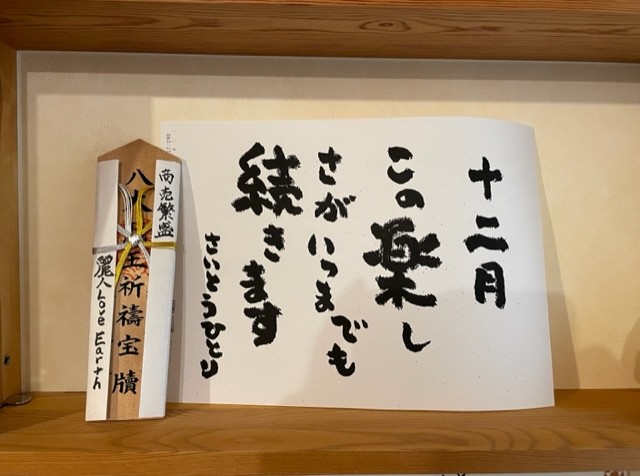 十二月
この楽し
さがいつまでも
続きます
さいとうひとり
商売繁盛
八大
王祈禱宝牘
麗人Love Earth